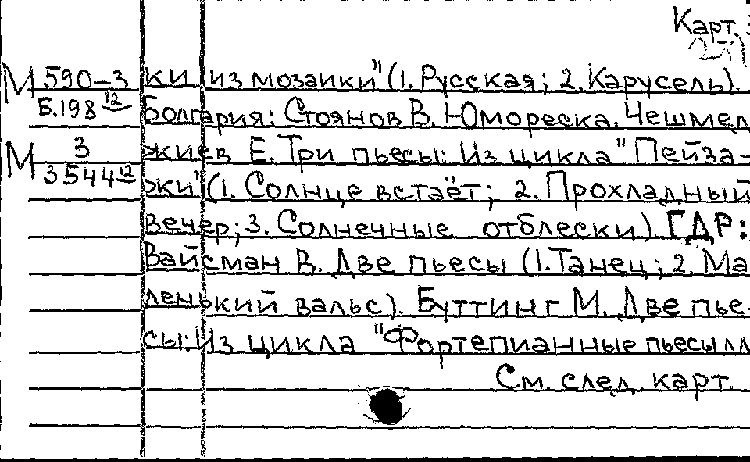 Карт.
М 590-3 ки из мозаики" (1. Русская; 2. Карусель).
Б.198 12 Болгария: Стоянов В. Юмореска. Чешмед
М 3 жиев Е. Три пьесы: Из цикла "Пейза-
3544 12 жи" (1. Солнце встаёт; 2. Прохладный
вечер; 3. Солнечные отблески) ГДР:
Вайсман В. Две пьесы (1. Танец; 2. Ма
ленький вальс). Буттинг М. Две пье-
сы: Из цикла "Фортепианные пьесы дл
См. след. карт.